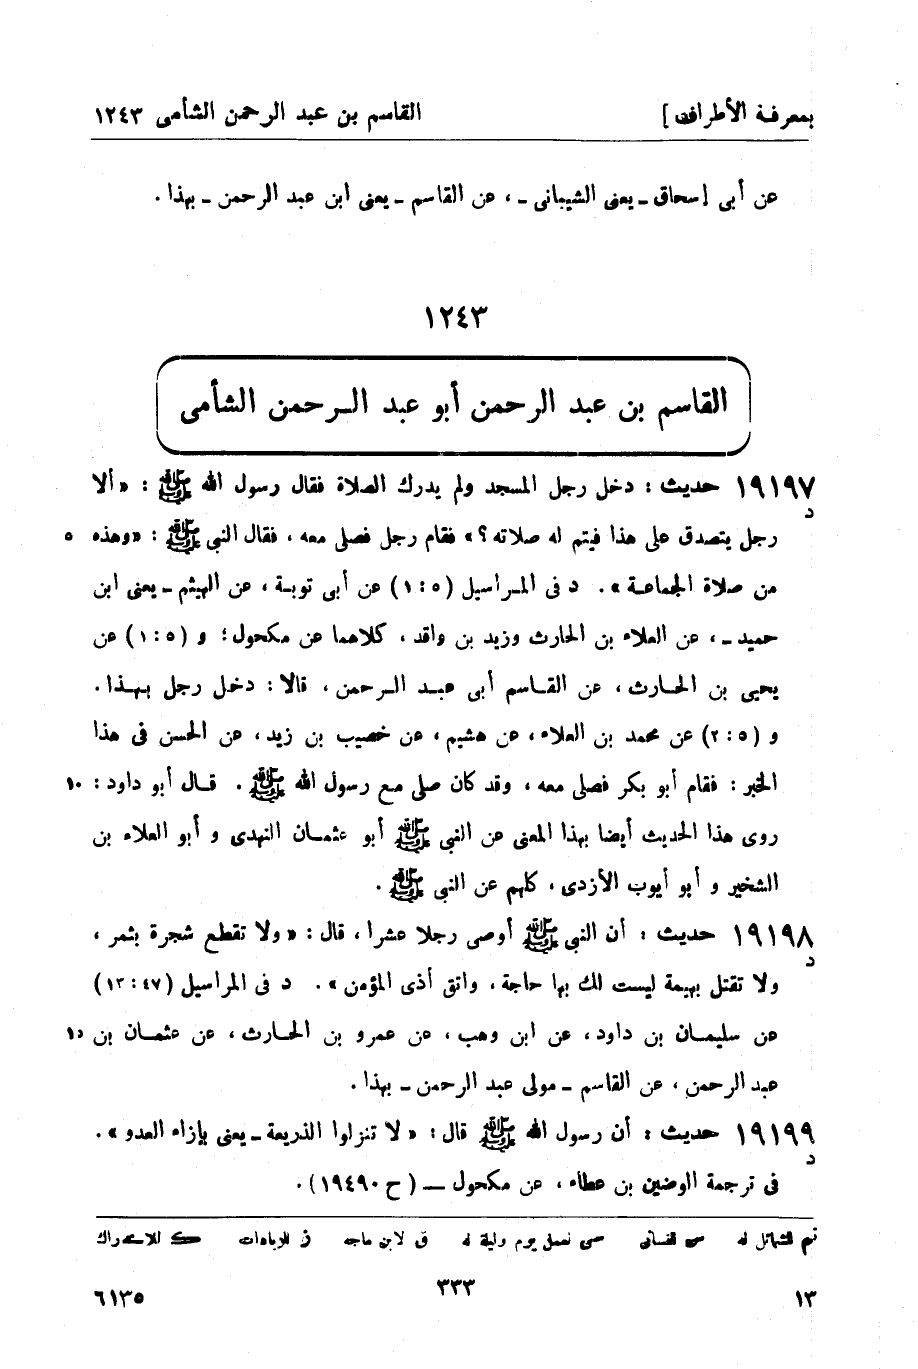 بمعرفة الأطراف ] القاسم بن عبد الرحمن الشأمى ١٢٤٣
عن أبى إسحاق ـ يعنى الشيبانى ـ ، عن القاسم ـ يعنى ابن عبد الرحمن ـ بهذا .
١٢٤٣
القاسم بن عبد الرحمن أبو عبد الـرحمن الشأمى
١٩١٩٧ حديث : دخل رجل المسجد ولم يدرك الصلاة فقال رسول الله ﷺ : « ألا
د
رجل يتصدق على هذا فيتم له صلاته ؟ » فقام رجل فصلى معه ، فقال النبى ﷺ : « وهذه ٥
من صلاة الجماعـة » . د فى المـراسيل (٥ : ١) عن أبى توبـة ، عن الهيثم ـ يعنى ابن
حميد ـ ، عن العلاء بن الحارث وزيد بن واقد ، كلاهما عن مكحول ؛ و (٥ : ١) عن
يحيى بن الحـارث ، عن القـاسم أبى عبـد الـرحمن ، قالا : دخـل رجل بـهـذا .
و (٥ : ٢) عن محمد بن العلاء ، عن هشيم ، عن خصيب بن زيد ، عن الحسن فى هذا
الخبر : فقام أبو بكر فصلى معه ، وقد كان صلى مع رسول الله ﷺ . قـال أبو داود : ١٠
روى هذا الحديث أيضا بهذا المعنى عن النبى ﷺ أبو عثمـان النهدى و أبو العلاء بن
الشخير و أبو أيوب الأزدى ، كلهم عن النبى ﷺ .
١٩١٩٨ حديث : أن النبى ﷺ أوصى رجلا عشرا ، قال : « ولا تقطع شجرة بثمر ،
د
ولا تقتل بهيمة ليست لك بها حاجة ، واتق أذى المؤمن » . د فى المراسيل (٤٧ : ١٣)
عن سليمـان بن داود ، عن ابن وهب ، عن عمرو بن الحـارث ، عن عثمـان بن ١٥
عبد الرحمن ، عن القاسم ـ مولى عبد الرحمن ـ بهذا .
١٩١٩٩ حديث : أن رسول الله ﷺ قال : « لا تنزلوا الذريعة ـ يعنى بإزاء العدو » .
د
فى ترجمة الوضين بن عطاء ، عن مكحول ــ ( ح ١٩٤٩٠ ) .
تم للشمائل له س للنسائى سى لعمل يوم وليلة له ق لابن ماجه ز للزيادات ك للاستدراك
١٣ ٣٣٣ ٦١٣٥